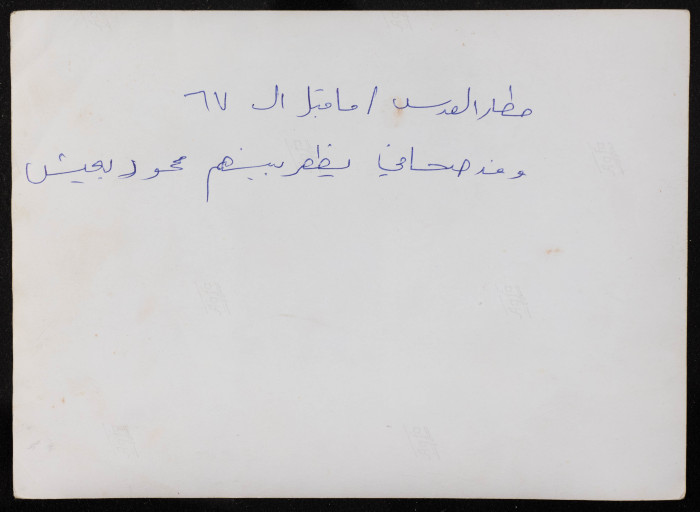 مطار القدس / ما قبل ال ٦٧
وفد صحافي يظهر بينهم محمود يعيش